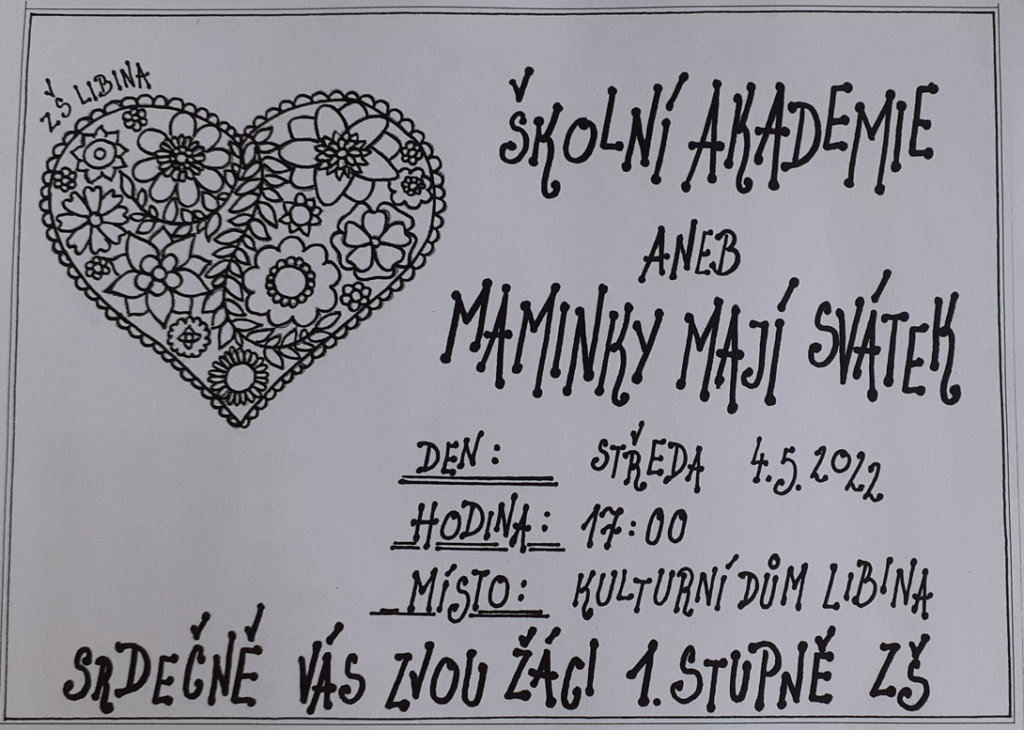 ZŠ LIBINA
ŠKOLNÍ AKADEMIE
ANEB
MAMINKY MAJÍ SVÁTEK
DEN: STŘEDA 4.5.2022
HODINA: 17:00
MÍSTO: KULTURNÍ DŮM LIBINA
SRDEČNĚ VÁS ZVOU ŽÁCI 1. STUPNĚ ZŠ